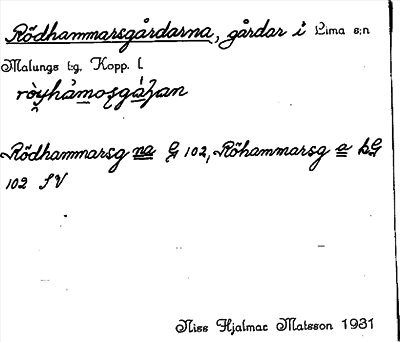 Rödhammarsgårdarna, gårdar i Lima s:n
Malungs t:g, Kopp. l.
Rödhammarsg na G 102, Röhammarsg a bG
102 SV
Nils Hjalmar Matsson 1931